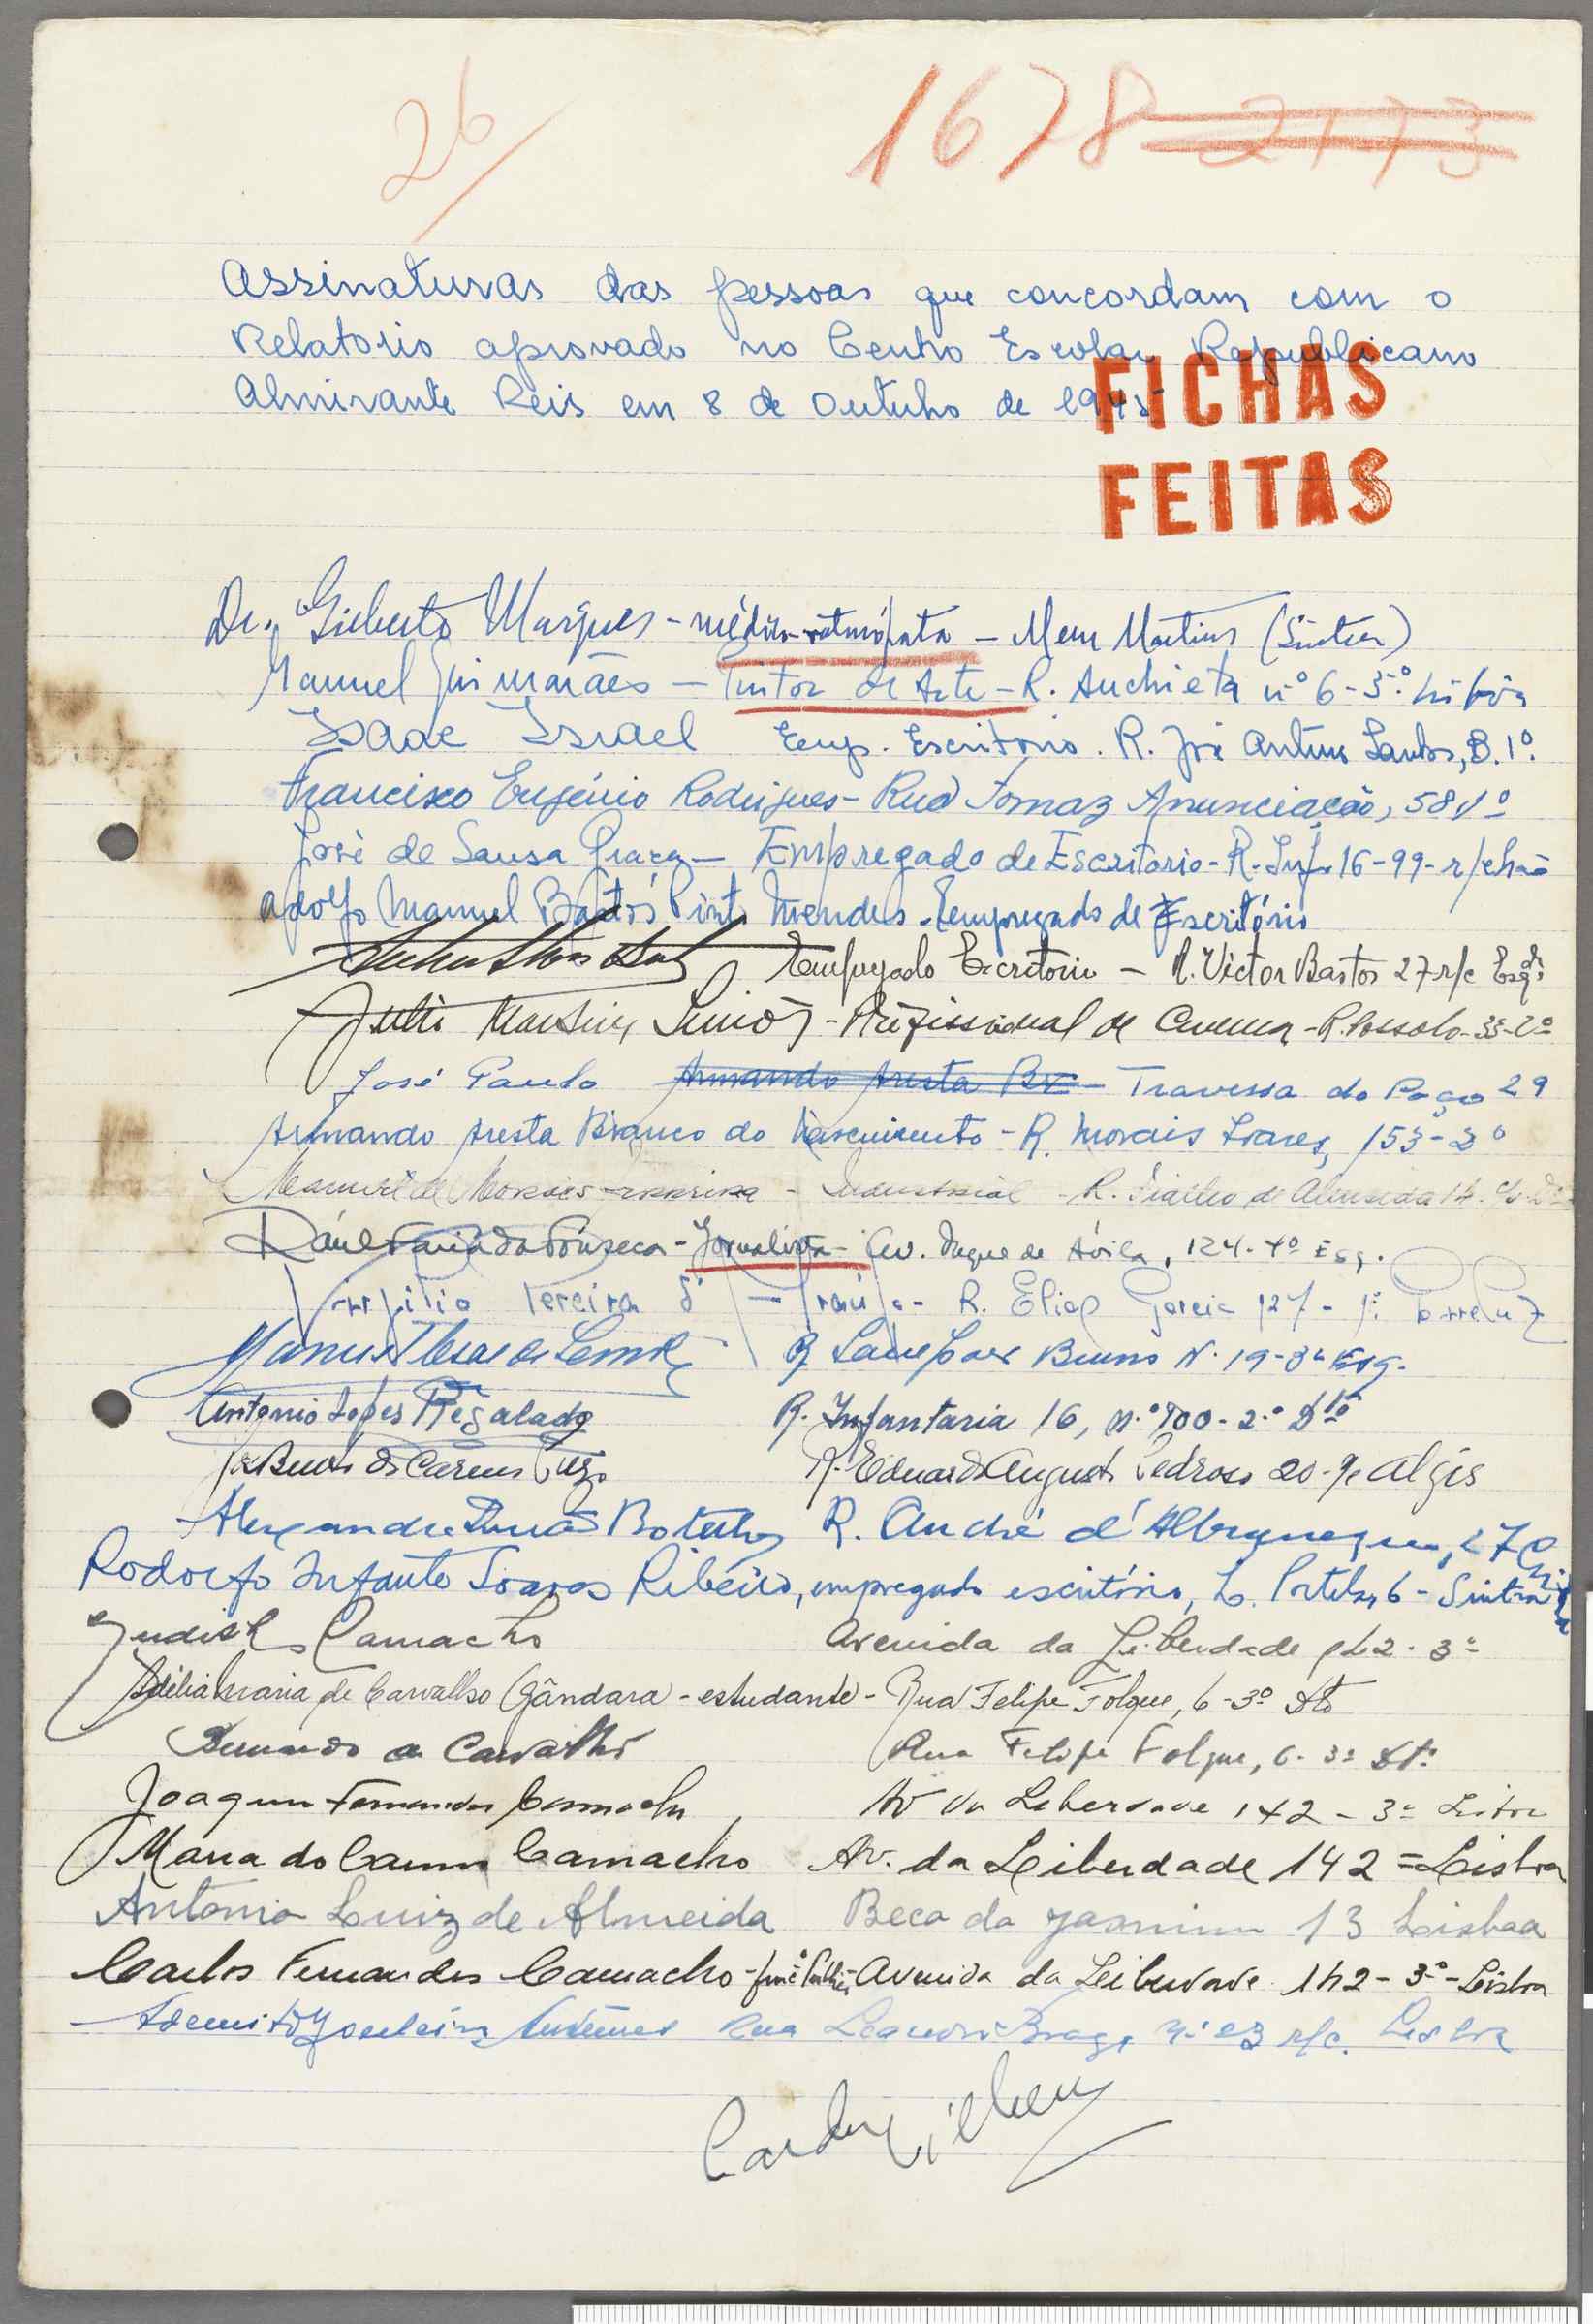 26/
1678 2173
Assinaturas das pessoas que concordam com o
Relatorio aprovado no Centro Escolar Republicano
Almirante Reis em 8 de Outubro de 1945
FICHAS
FEITAS
Dr. Gilberto Marques - médico-naturópata - Mem Martins (Sintra)
Manuel Guimarães - Pintor de Arte - R. Anchieta nº 6-3º. Lisbôa
Isaac Israel Emp. Escritorio. R. José Antonio Santos, B. 1º.
Francisco Eugénio Rodrigues - Rua Tomaz Anunciação, 58 1º
José de Sousa Graça - Empregado de Escritorio - R. Inf. 16-99-r/chão
Adolfo Manuel Bastos Pinto Mendes - Empregado de Escritório
Empregado Escritorio - R. Victor Bastos 27 r/c Esq.
Julio Martins Junior - Profissional de Cinema - R. Possolo - 33-2º
José Paulo Armando Aresta Br - Travessa do Paço 29
Armando Aresta Branco do Nascimento - R. Morais Soares, 153-2º
Manuel de Moraes - Industrial - R. Fialho de Almeida 14
Raúl Faria da Fonseca - Jornalista - Av. Duque de Ávila, 124-4º Esq.
Virgilio Pereira d'Araújo - R. Elias Garcia 127-1º
Manuel R. Sampaio Bruno N. 19-3º Esq.
Antonio Lopes Régalado R. Infantaria 16, n.º 100-2.º Dto
R. Eduardo Augusto Pedroso 20 Algés
Alexandre Botelho R. André d'Albuquerque, 27
Rodolfo Infante Soares Ribeiro, empregado escritório, L. Portela, 6 - Sintra
Judith Camacho Avenida da Liberdade 142-3º
Adélia Maria de Carvalho Gândara - estudante - Rua Felipe Folque, 6-3º Dto
Bernardo de Carvalho Rua Felipe Folque, 6-3º Dtº
Joaquim Fernandes Camacho, Av da Liberdade 142-3º Lisboa
Maria do Carmo Camacho Av. da Liberdade 142 = Lisboa
Antonio Luiz de Almeida Beco do Jasmim 13 Lisboa
Carlos Fernandes Camacho - Avenida da Liberdade 142-3º - Lisboa
Rua Leandro Braga nº 23 r/c. Lisboa